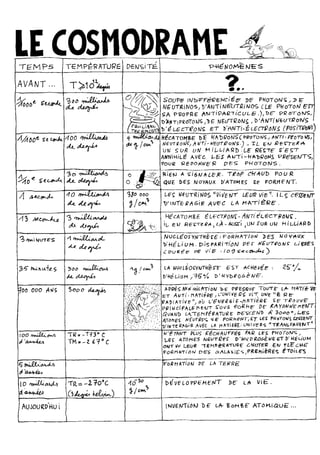 LE COSMODRAME
TEMPS TEMPÉRATURE DENSITÉ PHÉNOMÈNES
AVANT... T>10³²degrés ?..
1/1000e seconde 300 milliards de degrés
SOUPE INDIFFÉRENCIÉE DE PHOTONS, DE
NEUTRINOS, D'ANTINEUTRINOS (LE PHOTON EST
SA PROPRE ANTIPARTICULE!), DE PROTONS,
D'ANTIPROTONS, DE NEUTRONS, D'ANTINEUTRONS
D'ÉLECTRONS ET D'ANTI-ÉLECTRONS (POSITRONS)
1/100e seconde 100 milliards de degrés g/cm³
HÉCATOMBE DE HADRONS (PROTONS, ANTI-PROTONS,
NEUTRONS, ANTI-NEUTRONS). IL EN RESTERA
UN SUR UN MILLIARD LE RESTE S'EST
ANNIHILÉ AVEC LES ANTI-HADRONS PRÉSENTS,
POUR REDONNER DES PHOTONS.
1/10e seconde 30 milliards de degrés
RIEN A SIGNALER. TROP CHAUD POUR
QUE DES NOYAUX D'ATOMES SE FORMENT.
1 seconde 10 milliards de degrés g/cm³
LES NEUTRINOS "VIVENT LEUR VIE". ILS CESSENT
D'INTERAGIR AVEC LA MATIÈRE.
13 secondes 3 milliards de degrés
HÉCATOMBE ÉLECTRONS-ANTIÉLECTRONS.
IL EN RESTERA, LÀ-AUSSI, UN SUR UN MILLIARD
3 minutes 1 milliard de degrés
NUCLÉOSYNTHÈSE: FORMATION DES NOYAUX
D'HÉLIUM. DISPARITION DES NEUTRONS LIBRES
(DURÉE DE VIE: 109 secondes)
35 minutes 300 millions de degrés 1g/cm³
LA NUCLÉOSYNTHÈSE EST ACHEVÉE: 25%
D'HÉLIUM, 75% D'HYDROGÈNE.
700 000 ANS 3000 degrés
APRÈS MATIÈRE
ET ANTI-MATIÈRE, L'UNIVERS VIT UNE "ÈRE
RADIATIVE", OÙ L'ÉNERGIE-MATIÈRE SE TROUVE
PRINCIPALEMENT SOUS FORME DE RAYONNEMENT.
QUAND LA TEMPÉRATURE DESCEND À 3000°, LES
ATOMES NEUTRES SE FORMENT, ET LES PHOTONS CESSENT
D'INTERAGIR AVEC LA MATIÈRE: UNIVERS "TRANSPARENT"
100 millions d'années TR= TM=
N'ÉTANT PLUS RÉCHAUFFÉS PAR LES PHOTONS,
LES ATOMES NEUTRES D'HYDROGÈNE ET D'HÉLIUM
ONT VU LEUR TEMPÉRATURE CHUTER EN FLÈCHE
FORMATION DES GALAXIES, PREMIÈRES ÉTOILES
5 milliards d'années FORMATION DE LA TERRE
10 milliards d'années TR=-270°C (3 degrés kelvin) g/cm³ DÉVELOPPEMENT DE LA VIE.
AUJOURD'HUI INVENTION DE LA BOMBE ATOMIQUE...